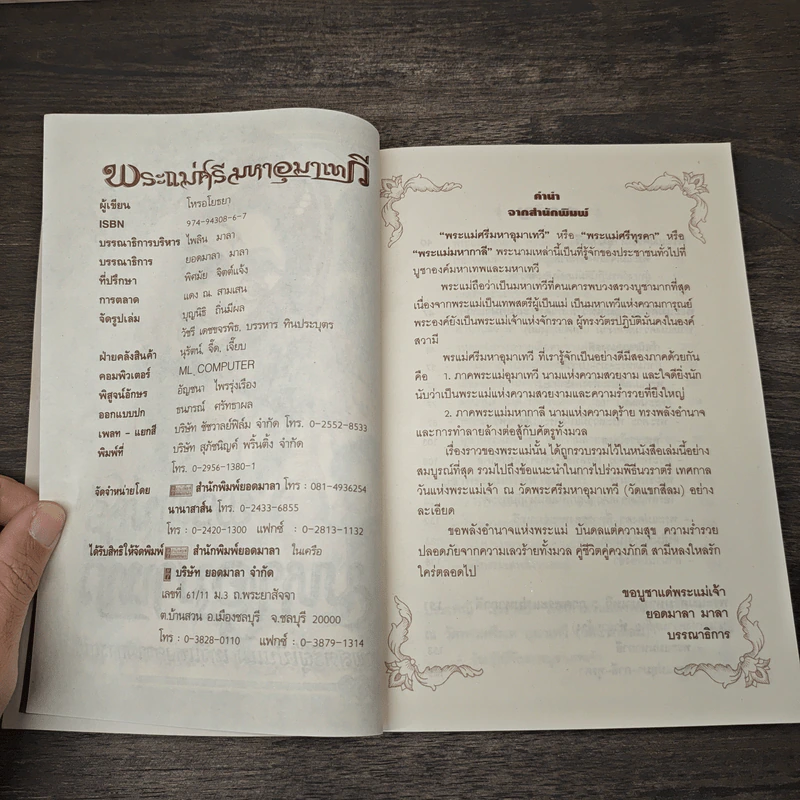 พระแม่ศรีมหาอุมาเทวี
ผู้เขียน โหรอโยธยา
ISBN 974-94308-6-7
บรรณาธิการบริหาร ไพลิน มาลา
บรรณาธิการ ยอดมาลา มาลา
ที่ปรึกษา พิศมัย จิตต์แจ้ง
การตลาด แดง ณ. สามเสน
จัดรูปเล่ม บุญนิธิ ถิ่นมีผล
วัชรี เดชขจรพิธ, บรรหาร ทินประบุตร
ฝ่ายคลังสินค้า นุรัตน์, จี๊ด, เจี๊ยบ
คอมพิวเตอร์ ML COMPUTER
พิสูจน์อักษร อัญชนา ไพรรุ่งเรือง
ออกแบบปก ธนภรณ์ ศรัทธาผล
เพลท - แยกสี บริษัท ชัชวาลย์ฟิล์ม จำกัด โทร. 0-2552-8533
พิมพ์ที่ บริษัท สุภัชนิญค์ พริ้นติ้ง จำกัด
โทร. 0-2956-1380-1
จัดจำหน่ายโดย สำนักพิมพ์ยอดมาลา โทร : 081-4936254
นานาสาส์น โทร. 0-2433-6855
โทร : 0-2420-1300 แฟกซ์ : 0-2813-1132
ได้รับสิทธิให้จัดพิมพ์ สำนักพิมพ์ยอดมาลา ในเครือ
บริษัท ยอดมาลา จำกัด
เลขที่ 61/11 ม.3 ถ.พระยาสัจจา
ต.บ้านสวน อ.เมืองชลบุรี จ.ชลบุรี 20000
โทร : 0-3828-0110 แฟกซ์ : 0-3879-1314
คำนำ
จากสำนักพิมพ์
"พระแม่ศรีมหาอุมาเทวี" หรือ "พระแม่ศรีทุรคา" หรือ
"พระแม่มหากาลี" พระนามเหล่านี้เป็นที่รู้จักของประชาชนทั่วไปที่
บูชาองค์มหาเทพและมหาเทวี
พระแม่ถือว่าเป็นมหาเทวีที่คนเคารพบวงสรวงบูชามากที่สุด
เนื่องจากพระแม่เป็นเทพสตรีผู้เป็นแม่ เป็นมหาเทวีแห่งความการุณย์
พระองค์ยังเป็นพระแม่เจ้าแห่งจักรวาล ผู้ทรงวัตรปฏิบัติมั่นคงในองค์
สวามี
พรแม่ศรีมหาอุมาเทวี ที่เรารู้จักเป็นอย่างดีมีสองภาคด้วยกัน
คือ 1. ภาคพระแม่อุมาเทวี นามแห่งความสวยงาม และใจดียิ่งนัก
นับว่าเป็นพระแม่แห่งความสวยงามและความร่ำรวยที่ยิ่งใหญ่
2. ภาคพระแม่มหากาลี นามแห่งความดุร้าย ทรงพลังอำนาจ
และการทำลายล้างต่อสู้กับศัตรูทั้งมวล
เรื่องราวของพระแม่นั้น ได้ถูกรวบรวมไว้ในหนังสือเล่มนี้อย่าง
สมบูรณ์ที่สุด รวมไปถึงข้อแนะนำในการไปร่วมพิธีนวราตรี เทศกาล
วันแห่พระแม่เจ้า ณ วัดพระศรีมหาอุมาเทวี (วัดแขกสีลม) อย่าง
ละเอียด
ขอพลังอำนาจแห่งพระแม่ บันดลแต่ความสุข ความร่ำรวย
ปลอดภัยจากความเลวร้ายทั้งมวล คู่ชีวิตคู่ควงภักดี สามีหลงใหลรัก
ใคร่ตลอดไป
ขอบูชาแด่พระแม่เจ้า
ยอดมาลา มาลา
บรรณาธิการ